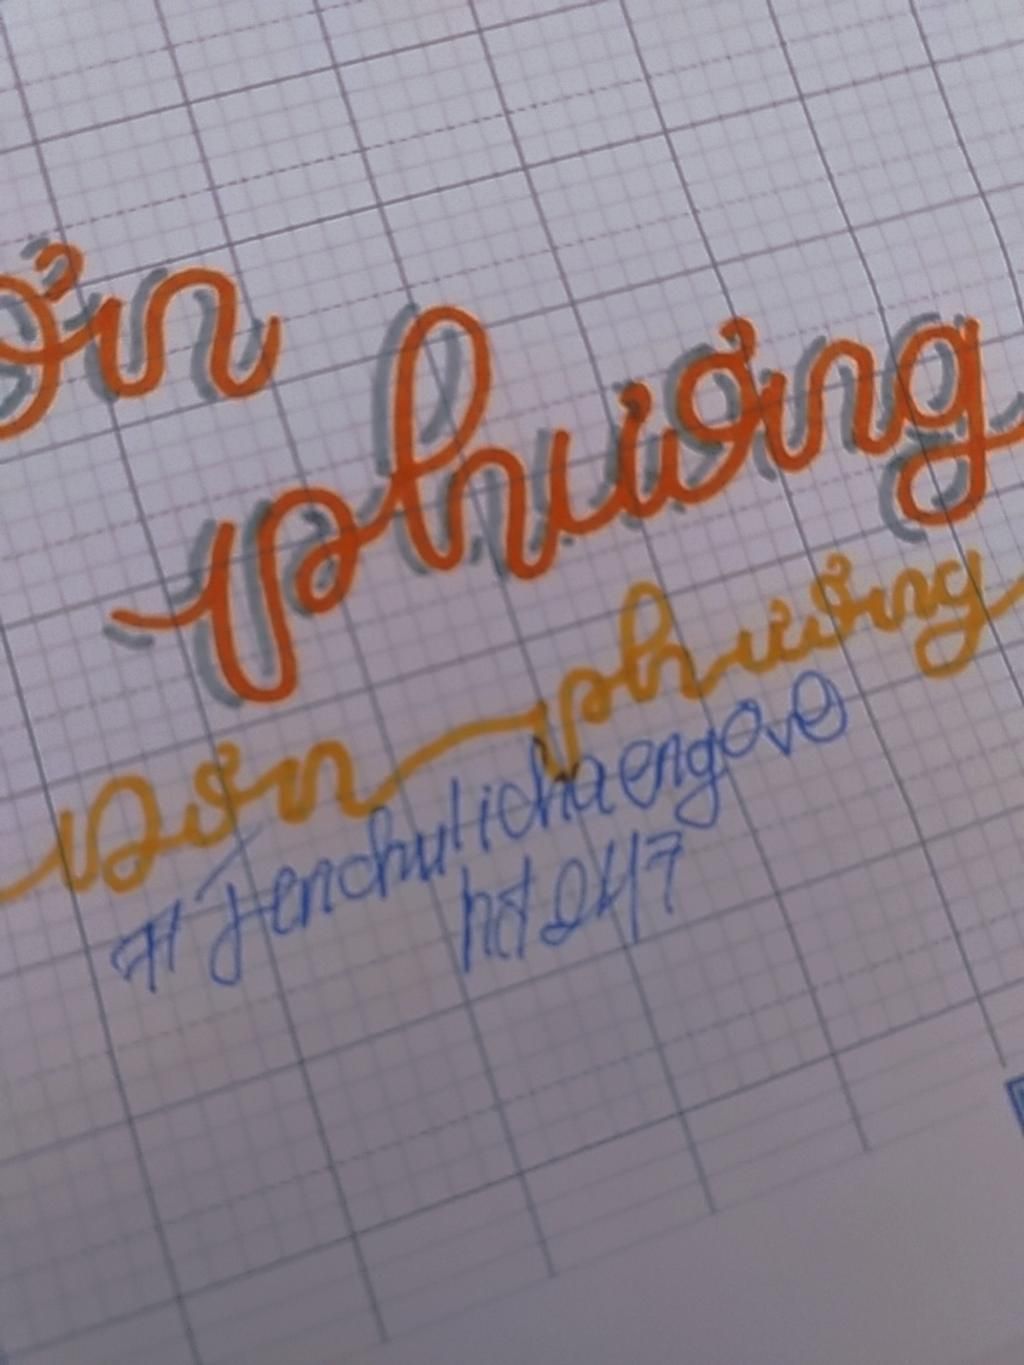 ơn
phương
Đơn phương
#jenchulichaengovo
hd247